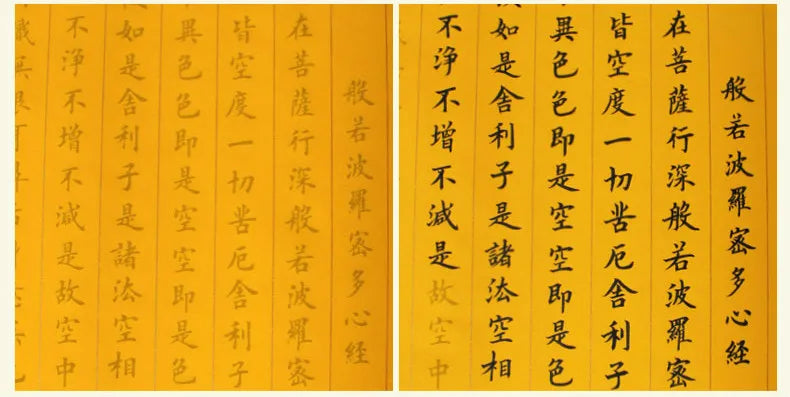 般若波羅蜜多心経
在菩薩行深般若波羅蜜
皆空度一切苦厄舎利子
異色色即是空空即是色
如是舎利子是諸法空相
不浄不増不減是故空中
般若波羅蜜多心経
在菩薩行深般若波羅蜜
皆空度一切苦厄舎利子
異色色即是空空即是色
如是舎利子是諸法空相
不浄不増不減是故空中